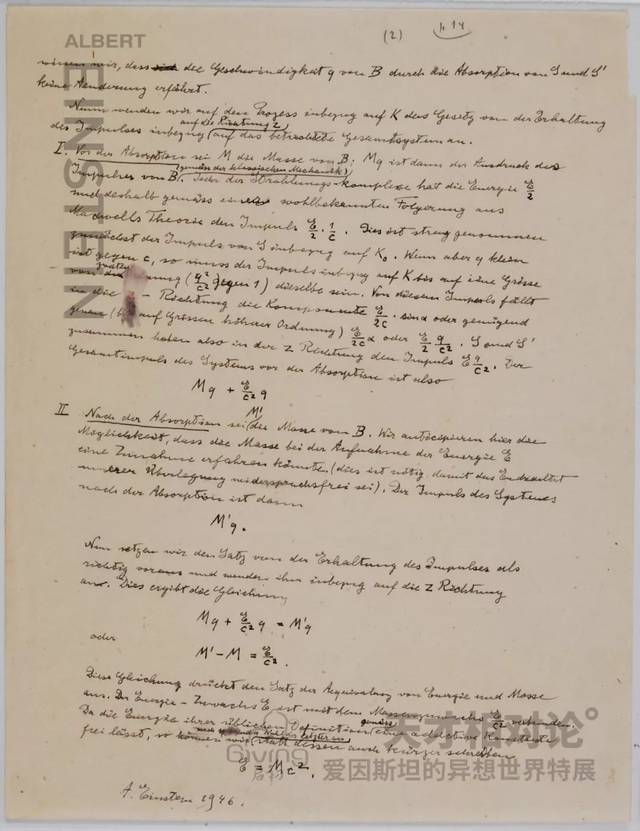 (2)
ALBERT
EINSTEIN
wissen wir, dass die Geschwindigkeit q von B durch die Absorption von S und S'
keine Aenderung erfährt.
Nunn wenden wir auf den Prozess inbezug auf K das Gesetz von der Erhaltung
auf die Richtung z
des Impulses inbezug auf das betrachtete Gesamtsystem an.
I. Vor der Absorption sei M die Masse von B; Mq ist dann der Ausdruck des
(gemäss der klassischen Mechanik)
Impulses von B. Jeder der Strahlungs-komplexe hat die Energie E/2
und deshalb gemäss einer wohlbekannten Folgerung aus
Maxwells Theorie den Impuls E/2 · 1/c. Dies ist streng genommen
zunächst der Impuls von S inbezug auf K₀. Wenn aber q klein
ist gegen c, so muss der Impuls inbezug auf K bis auf eine Grösse
von der (q²/c² gegen 1) dieselbe sein. Von diesem Impuls fällt
in die - Richtung die Komponente E/2c · sin α oder genügend
genau (bis auf Grössen höherer Ordnung) E/2c α oder E/2 q/c². S und S'
zusammen haben also in der z Richtung den Impuls E q/c². Der
Gesamtimpuls des Systems vor der Absorption ist also
Mq + E/c² q
II Nach der Absorption sei M' die Masse von B. Wir antizipieren hier die
Möglichkeit, dass die Masse bei der Aufnahme der Energie E
eine Zunahme erfahren könnte (dies ist nötig, damit das Endresultat
unserer Überlegung widerspruchsfrei sei). Der Impuls des Systems
nach der Absorption ist dann
M'q.
Nun setzen wir den Satz von der Erhaltung des Impulses als
richtig voraus und wenden ihn inbezug auf die z Richtung
an. Dies ergibt die Gleichung
Mq + E/c² q = M'q
oder
M' - M = E/c².
Diese Gleichung drückt den Satz der Aequivalenz von Energie und Masse
aus. Der Energie-Zuwachs E ist mit dem Massenzuwachs E/c² verbunden.
Da die Energie ihrer üblichen Definition gemäss eine additive Konstante
frei lässt, so können wir statt dessen auch kürzer schreiben
E = Mc².
A. Einstein 1946.
天才相对论°
爱因斯坦的异想世界特展